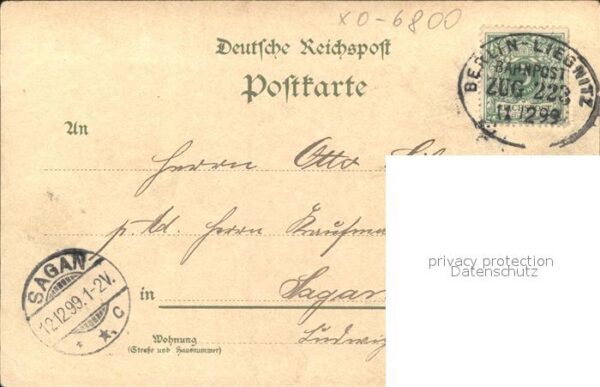 XO-6800
Deutsche Reichspost
Postkarte
BERLIN-LIEGNITZ
BAHNPOST
ZUG 223
11 12 99
An
Herrn Otto
p. Ad. Herrn Kaufm
privacy protection
Datenschutz
SAGAN
12.12.99.1-2V.
* * C
in Sagan
Wohnung
(Straße und Hausnummer)
Ludwig